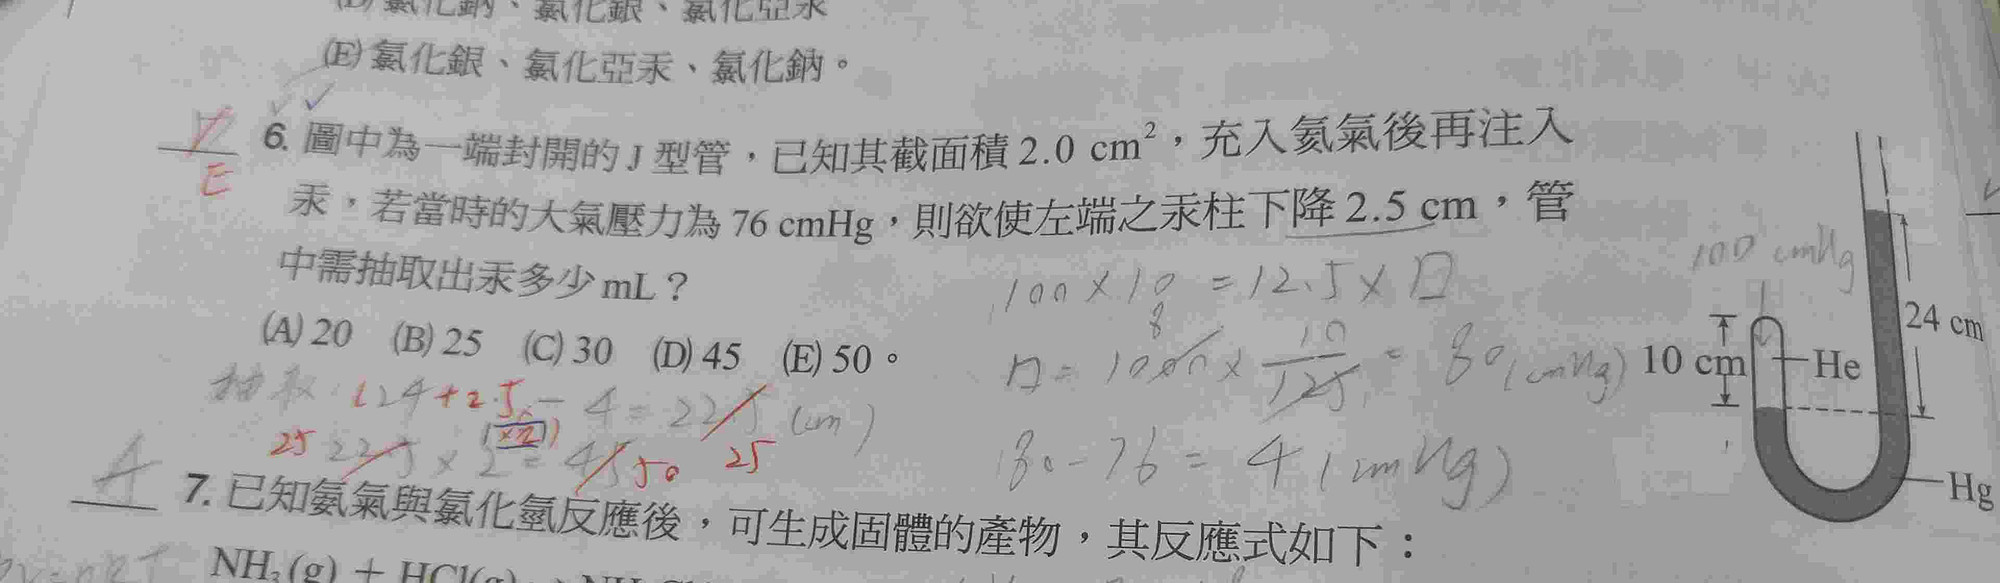 (D) 氯化鈉、氯化銀、氯化亞汞
(E) 氯化銀、氯化亞汞、氯化鈉。
E
6. 圖中為一端封開的 J 型管，已知其截面積 2.0 cm²，充入氦氣後再注入
汞，若當時的大氣壓力為 76 cmHg，則欲使左端之汞柱下降 2.5 cm，管
中需抽取出汞多少 mL？
(A) 20 (B) 25 (C) 30 (D) 45 (E) 50。
100 × 10 = 12.5 × 口
口 = 1000 × 10/125 = 80 (cmHg)
8
80 - 76 = 4 (cmHg)
抽取：(24 + 2.5 - 4 = 22.5 (cm)
25
22.5 × 2 = 45 50
(×2)
25
100 cmHg
24 cm
10 cm
He
Hg
A
7. 已知氨氣與氯化氫反應後，可生成固體的產物，其反應式如下：
NH₃(g) + HCl(g)